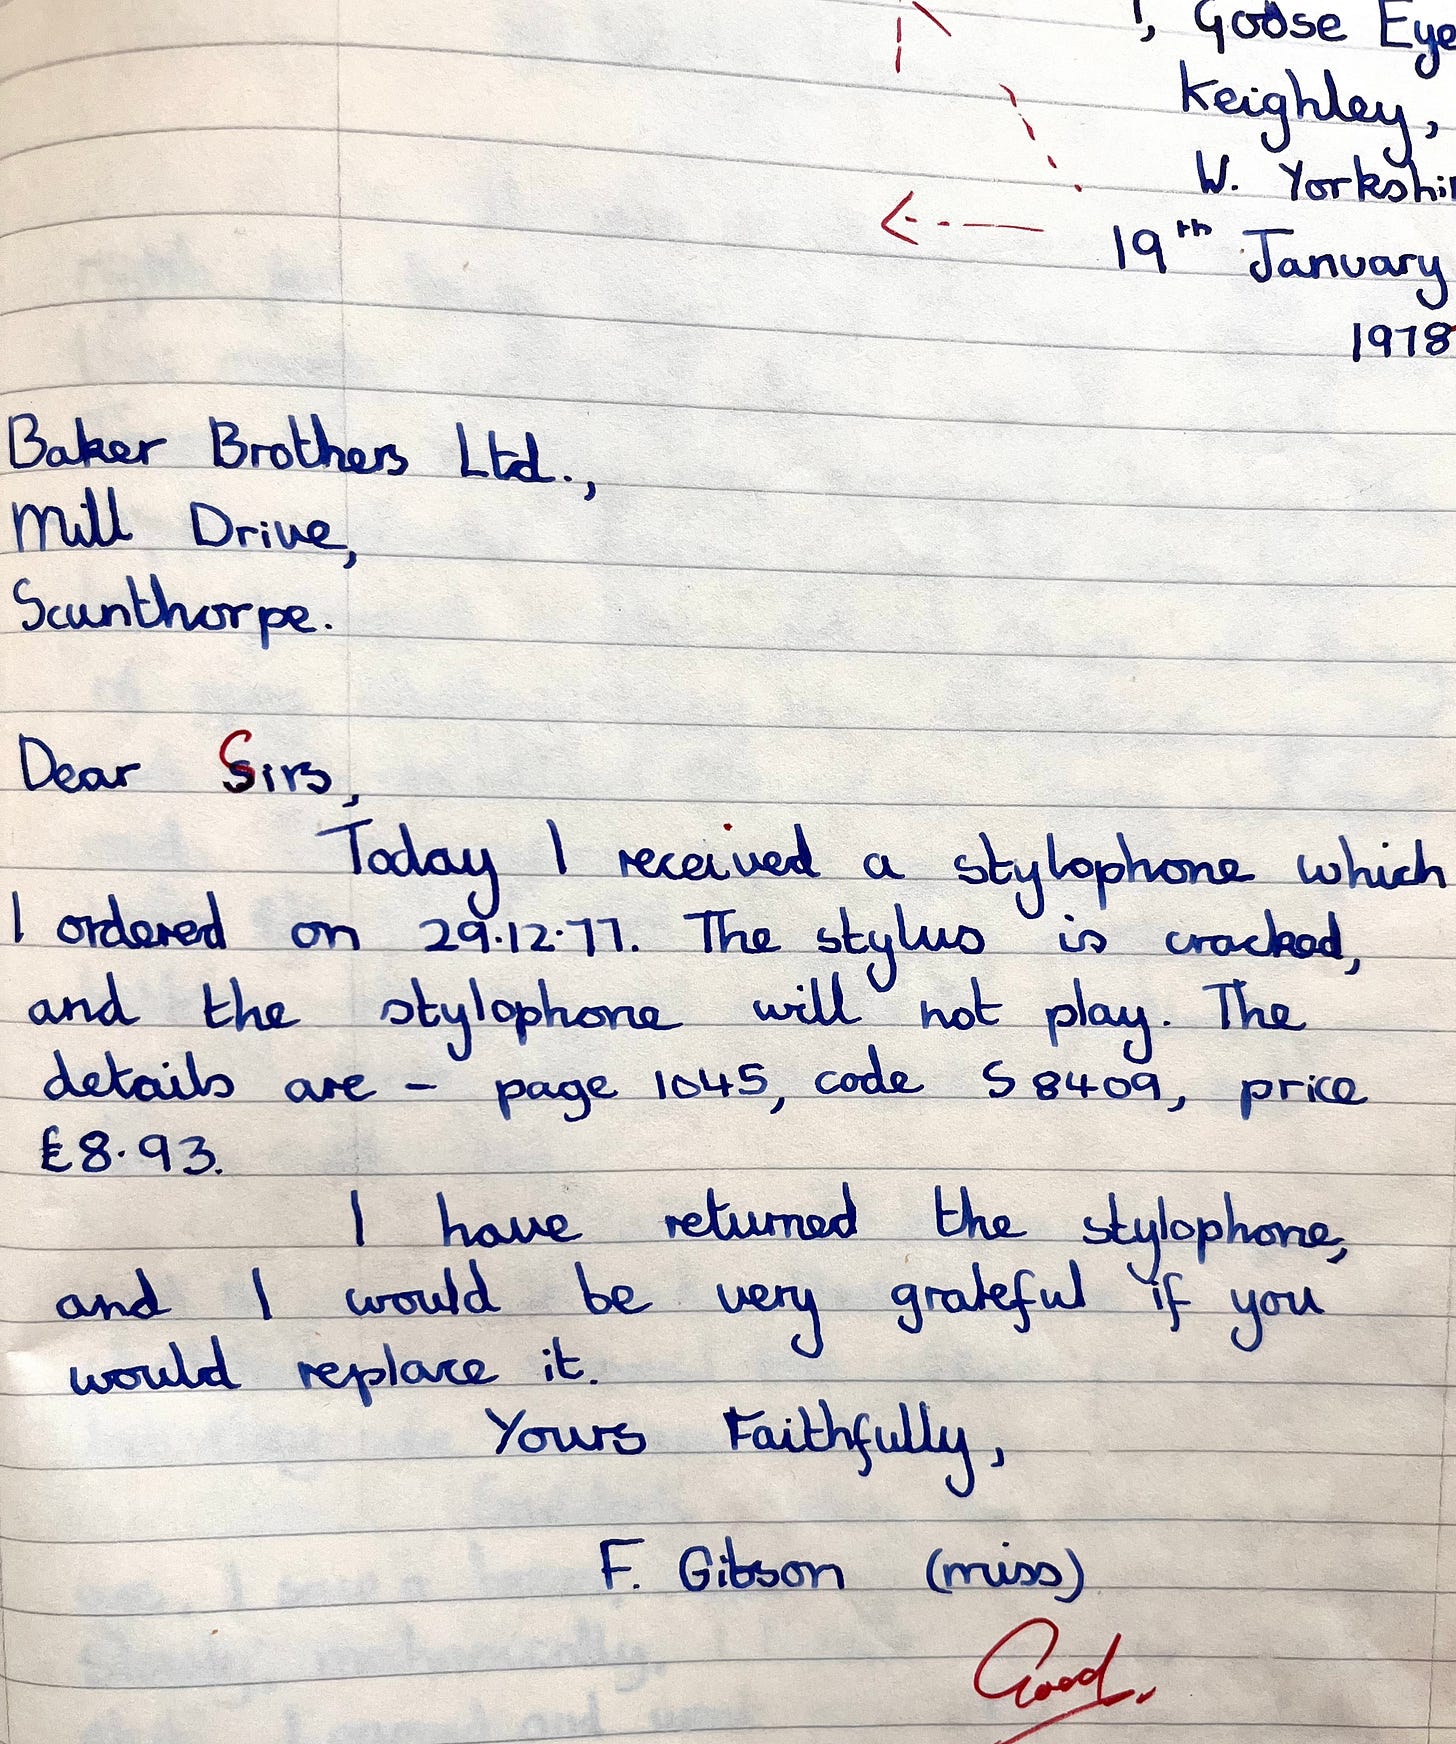 1, Goose Eye
Keighley,
W. Yorkshir
19th January
1978
Baker Brothers Ltd.,
Mill Drive,
Scunthorpe.
Dear Sirs,
Today I received a stylophone which
I ordered on 29.12.77. The stylus is cracked,
and the stylophone will not play. The
details are - page 1045, code S8409, price
£8.93.
I have returned the stylophone,
and I would be very grateful if you
would replace it.
Yours Faithfully,
F. Gibson (miss)
Good.